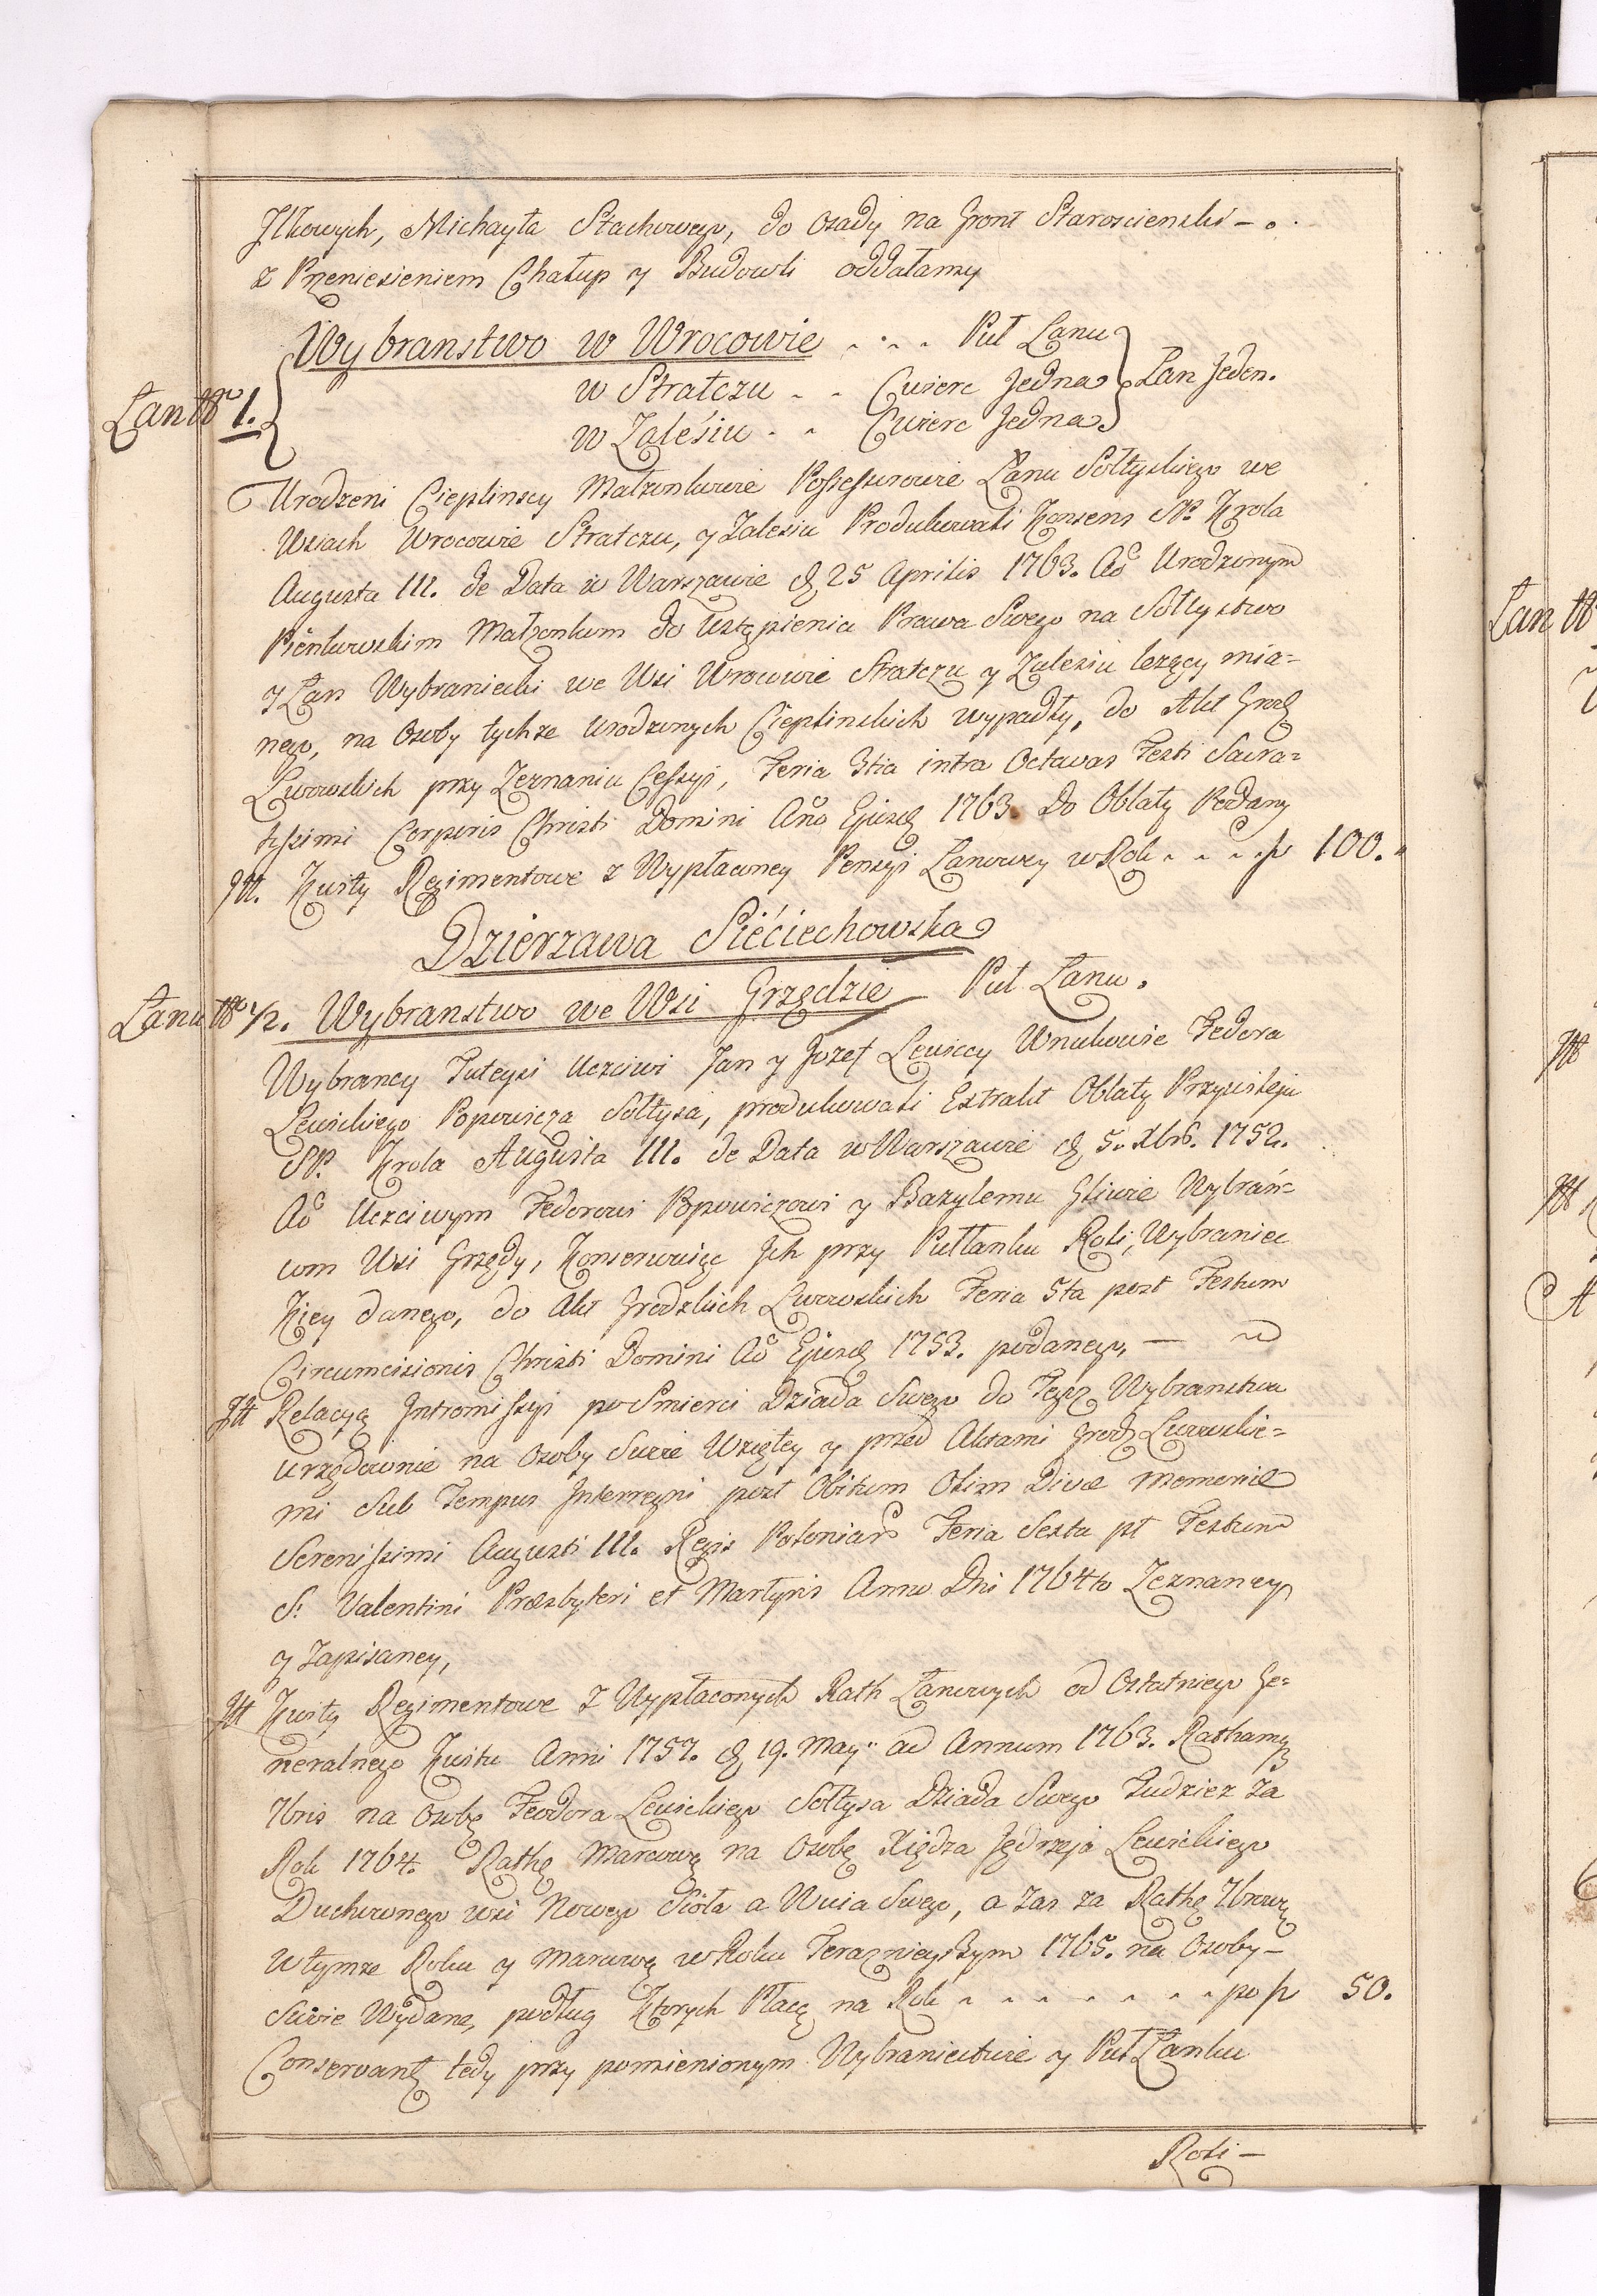 Ilkowych, Michayła Stachowego, do osady na Gront Starościenski – .
z Przeniesieniem Chałup y Budowli oddałamy
Wybranstwo w Wrocowie . . . Puł Łanu
w Stratczu . . Cwierc Jedna
Łan Jeden.
Łan No 1.
w Zalesiu . . Cwierc Jedna
Urodzeni Cieplinscy Małzonkowie Possessorowie Łanu Sołtyskiego we
Wsiach Wrocowie Stratczu, y Zalesiu Produkowali Konsens SP. Krola
Augusta III. de Data w Warszawie d 25 Aprilis 1763. Ao Urodzonym
Pieńkowskim Małżonkom do Ustąpienia Prawa Swego na Sołtystwo
y Łan Wybraniecki we Wsi Wrocowie Stratczu y Zalesiu lezący mia=
nego, na Osoby tychze Urodzonych Cieplinskich wypadły, do Akt Grodz
Lwowskich przy Zeznaniu Cessyi, Feria 3tia intra Octavas Festi Sacra=
tissimi Corporis Christi Domini Ano Ejusd 1763 do Oblaty Podany
Itt. Kwity Regimentowe z Wypłaconey Pensyi Łanowey w Rok . . . . p 100.
Dzierzawa Siećiechowska
Łanu No 1/2. Wybranstwo we Wsi Grzędzie Puł Łanu.
Wybrancy Tuteysi Uczciwi Jan y Jozef Lewiccy Wnukowie Fedora
Lewickiego Popowicza Sołtysa, produkowali Extrakt Oblaty Przywileju
SP. Krola Augusta III. de Data w Warszawie d 5. Xbris. 1752.
Ao Uczciwym Fedorowi Popowiczowi y Bazylemu Gliwie Wybrań=
com Wsi Grzędy, Konserwuiąc Ich przy Pułłanku Roli, Wybraniec
Kiey danego, do Akt Grodzkich Lwowskich Feria 5ta post Festum
Circumcisionis Christi Domini Ao Ejusd 1753. podanego, —
Itt Relacyą Intromissyi po Smierci Dziada Swego do Tegoz Wybranstwa
Urzędownie na Osoby Swoie Wziętey y przed Aktami Grodz Lwowskie=
mi Sub Tempus Interregni post Obitum Olim Divæ Memoriæ
Serenissimi Augusti III. Regis Poloniar Feria Sexta pt Festum
S. Valentini Præsbyteri et Martyris Anno Dni 1764to Zeznaney
y Zapisaney,
Itt Kwity Regimentowe z Wypłaconych Rath Łanowych od Ostatniego Ge=
neralnego Kwitu Anni 1757. d 19. May ad Annum 1763. Rathamq
7bris na Osobę Feodora Lewickiego Sołtysa Dziada Swego Tudziez za
Rok 1764. Rathę Marcową na Osobę Xiędza Jędrzeja Lewickiego
Duchownego wsi Nowego Sioła a Wuia Swego, a zas za Rathę 7brową
w tymze Roku y Marcową w Roku Terazniejszym 1765. na Osoby –
Swoie Wydane, podług Ktorych Płacą na Rok . . . . . . . po p 50.
Conservant tedy przy pomienionym Wybraniectwie y Puł Łanku
Roli –
Łan No
Itt
Itt
A